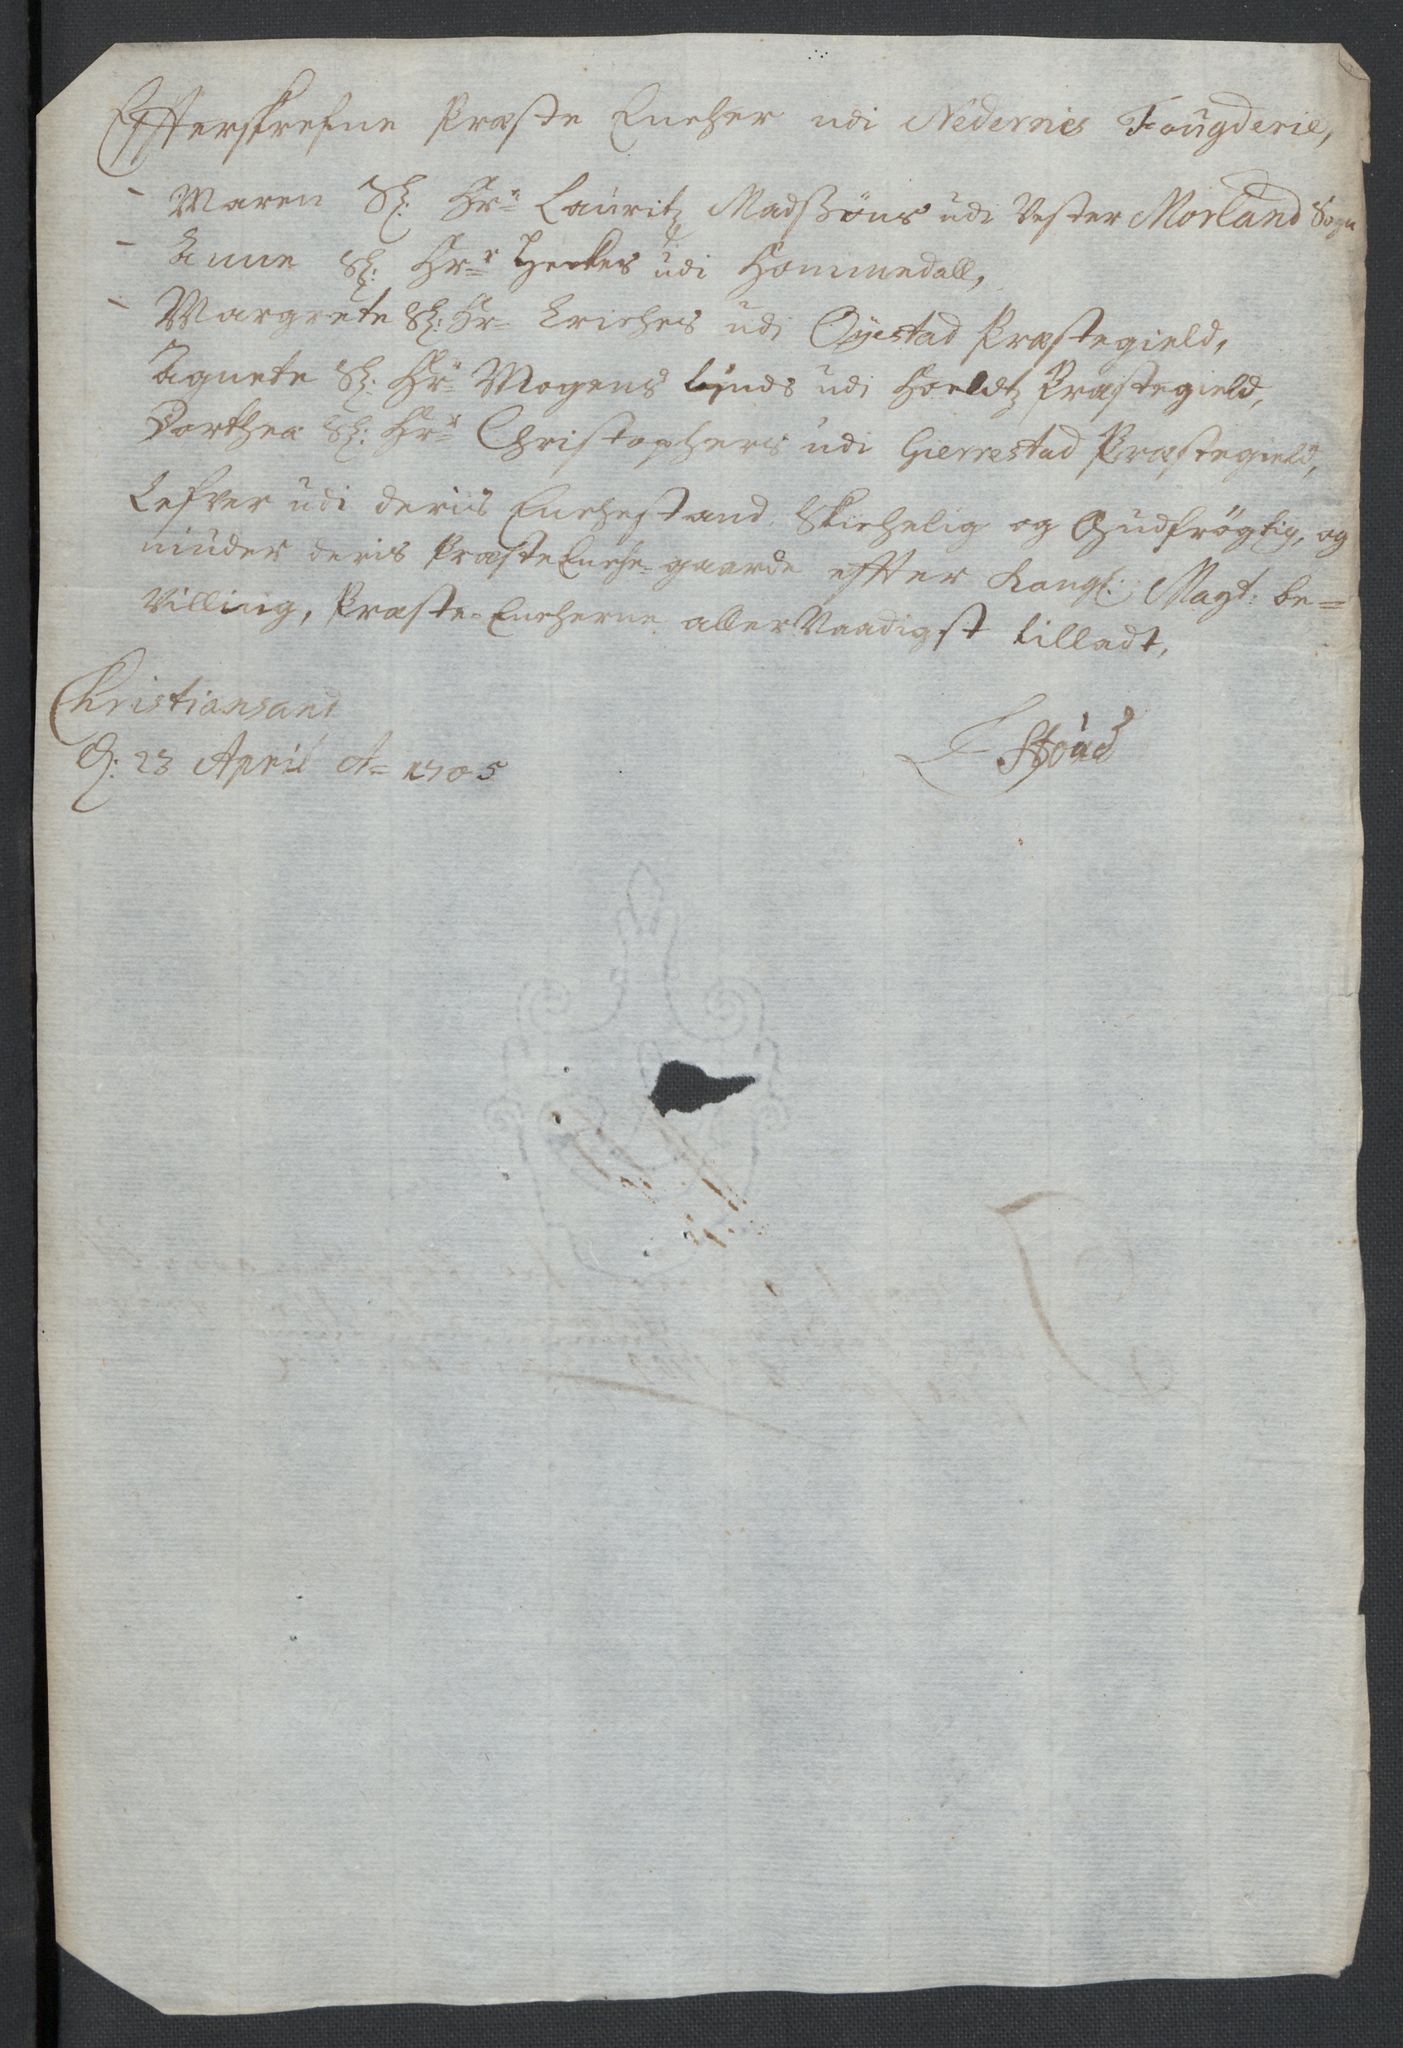 Effterskrefne Præste Encher udi Nedernes Fougderie,
- Maren Sl: Hr: Lauritz Madssøns udi Vester Morland Sogn
- Anne Sl: Hr: udi Hommedall,
- Margrete Sl: Hr: Erichs udi Øyestad Præstegield,
Agnete Sl: Hr: Mogens Lynds udi Hoeldtz Præstegield,
Dorthea Sl: Hr: Christophers udi Gierrestad Præstegield,
Lefver udi deris Enchestand Skichelig og Gudfrögtig, og
niuder deris Præste Enche-gaarde effter Kongl: Mayt: be=
villing, Præste-Encherne allerNaadigst tilladt,
Christiansand
d: 23 April Ao 1705